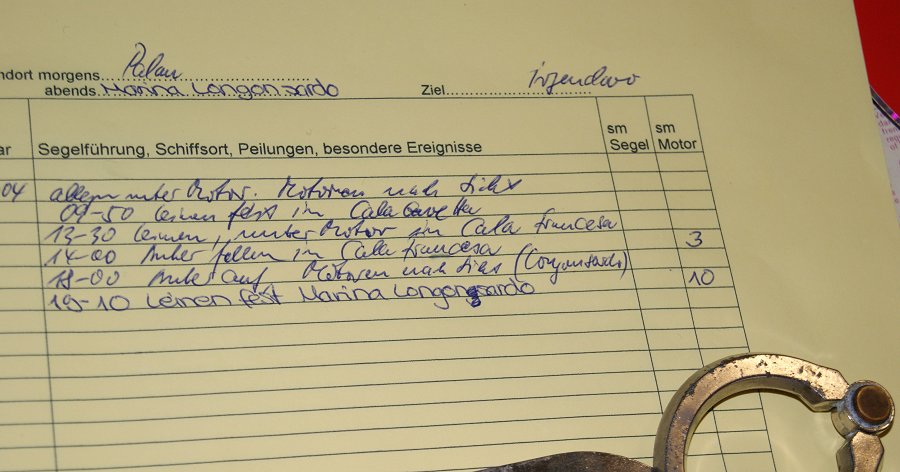 ndort morgens Palau
abends Marina Longonsardo Ziel irgendwo
ar Segelführung, Schiffsort, Peilungen, besondere Ereignisse sm Segel sm Motor
04 ablegen unter Motor. Motoren nach Sicht
09-50 Leinen fest in Cala
13-30 Leinen, unter Motor in Cala francesa
14-00 Anker fallen in Cala francesa 3
18-00 Anker auf Motoren nach (Longonsardo)
19-10 Leinen fest Marina Longongsardo 10